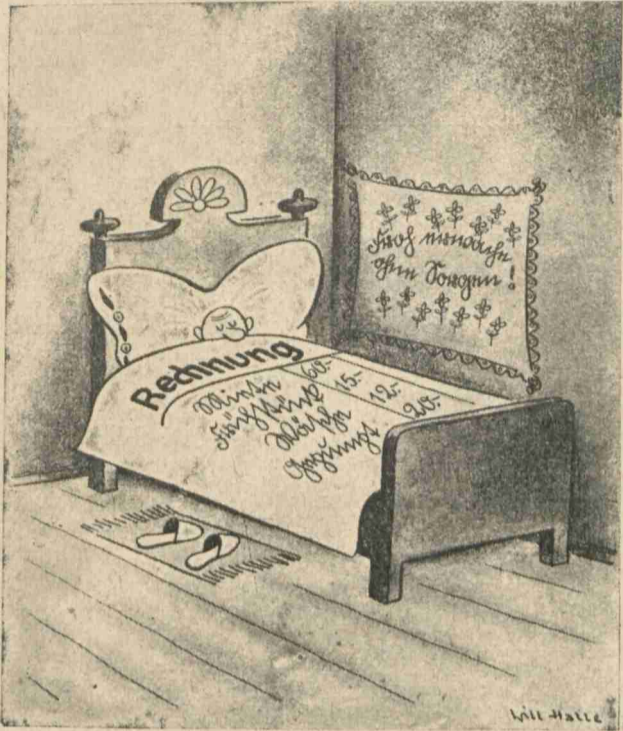 Froh erwache
ohne Sorgen!
Rechnung
Miete 60.-
Frühstück 15.-
Wäsche 12.-
20.-
Will Halle